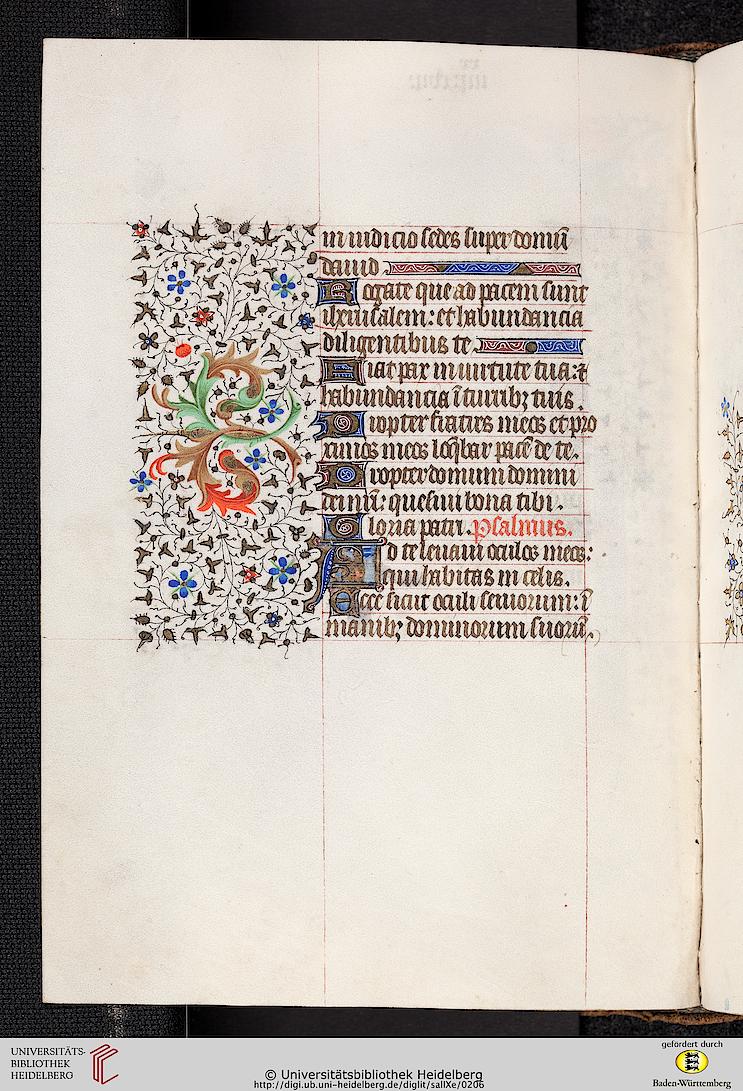 in iudicio sedes super domū
dauid
Rogate que ad pacem sunt
iherusalem: et habundancia
diligentibus te
Fiat pax in uirtute tua: ⁊
habundancia ī turribꝫ tuis.
Propter fratres meos et pro
ximos meos loq̄bar pacē de te.
Propter domum domini
dei nr̄i: quesiui bona tibi.
Gloria patri. Psalmus.
Ad te leuaui oculos meos:
qui habitas in celis.
Ecce sicut oculi seruorum: ī
manibꝫ dominorum suorū.
UNIVERSITÄTS-
BIBLIOTHEK
HEIDELBERG
© Universitätsbibliothek Heidelberg
http://digi.ub.uni-heidelberg.de/diglit/salIXe/0206
gefördert durch
Baden-Württemberg